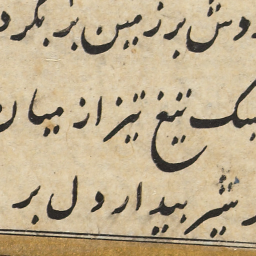 دوش بر زمین بر بکرد
سبک تیغ تیز از میان
شیر بیدار دل بر